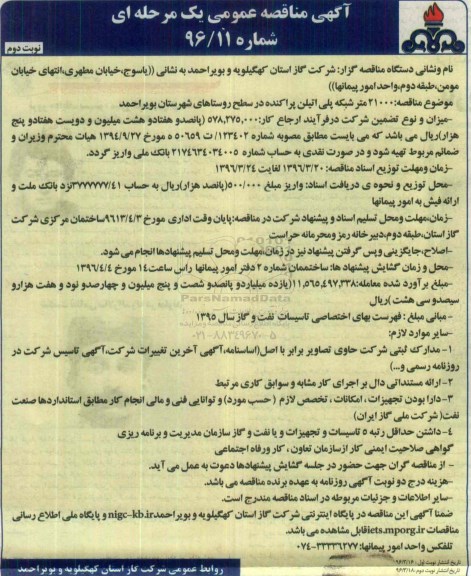 آگهی مناقصه عمومی یک مرحله ای
شماره ۹۶/۱۱
نوبت دوم
نام ونشانی دستگاه مناقصه گزار: شرکت گاز استان کهگیلویه و بویراحمد به نشانی ((یاسوج،خیابان مطهری،انتهای خیابان
مومن،طبقه دوم،واحد امور پیمانها))
موضوع مناقصه:۲۱۰۰۰ متر شبکه پلی اتیلن پراکنده در سطح روستاهای شهرستان بویراحمد
-میزان و نوع تضمین شرکت درفرآیند ارجاع کار:۵۷۸,۲۷۵,۰۰۰ (پانصدو هفتادو هشت میلیون و دویست هفتادو پنج
هزار)ریال می باشد که می بایست مطابق مصوبه شماره ۱۲۳۴۰۲/ت ۵۰۶۵۹ ه مورخ ۱۳۹۴/۹/۲۷ هیات محترم وزیران و
ضمائم مربوط تهیه شود و در صورت نقدی به حساب شماره ۲۱۷۴۶۳۴۰۳۴۰۰۵ بانک ملی واریز گردد.
-زمان ومهلت توزیع اسناد مناقصه: ۱۳۹۶/۳/۲۰ لغایت ۱۳۹۶/۳/۲۴
-محل توزیع و نحوه ی دریافت اسناد: واریز مبلغ ۵۰۰/۰۰۰(پانصد هزار)ریال به حساب ۳۷۷۷۷۷۷/۴۱نزد بانک ملت و
ارائه فیش به امور پیمانها
-زمان،مهلت ومحل تسلیم اسناد و پیشنهاد شرکت در مناقصه:پایان وقت اداری مورخ ۹۶۱۳/۴/۳ساختمان مرکزی شرکت
گاز استان،طبقه دوم،دبیرخانه رمز ومحرمانه حراست
-اصلاح،جایگزینی وپس گرفتن پیشنهاد نیز در زمان،مهلت ومحل تسلیم پیشنهادها انجام می شود.
-محل و زمان گشایش پیشنهاد ها: ساختمان شماره ۲ دفتر امور پیمانها راس ساعت۱۴ مورخ ۱۳۹۶/۴/۴
-مبلغ برآورد شده معامله:۱۱,۵۶۵,۴۹۷,۳۳۸(یازده میلیاردو پانصدو شصت و پنج میلیون و چهارصدو نود و هفت هزارو
سیصدو سی هشت )ریال
- مبانی مبلغ : فهرست بهای اختصاصی تاسیسات نفت و گاز سال ۱۳۹۵
-سایر موارد لازم:
۱- مدارک ثبتی شرکت حاوی تصاویر برابر با اصل(اساسنامه،آگهی آخرین تغییرات شرکت،آگهی تاسیس شرکت در
روزنامه رسمی و...)
۲- ارائه مستنداتی دال بر اجرای کار مشابه و سوابق کاری مرتبط
۳-دارا بودن تجهیزات ، امکانات ، تخصص لازم ( حسب مورد) و توانایی فنی و مالی انجام کار مطابق استانداردها صنعت
نفت( شرکت ملی گاز ایران)
۴- داشتن حداقل رتبه ۵ تاسیسات و تجهیزات و یا نفت و گاز سازمان مدیریت و برنامه ریزی
گواهی صلاحیت ایمنی کار ازسازمان تعاون ، کار ورفاه اجتماعی
- از مناقصه گران جهت حضور در جلسه گشایش پیشنهادها دعوت به عمل می آید.
-هزینه درج دو نوبت آگهی روزنامه به عهده برنده مناقصه می باشد.
-سایر اطلاعات و جزئیات مربوطه در اسناد مناقصه مندرج است.
ضمنا آگهی این مناقصه در پایگاه اینترنتی شرکت گاز استان کهگیلویه و بویراحمدnigc-kb.ir و پایگاه ملی اطلاع رسانی
مناقصات iets.mporg.irقابل مشاهده می باشد.
تلفکس واحد امور پیمانها: ۳۳۳۳۶۲۷۷-۰۷۴
تاریخ انتشار نوبت اول : ۹۶/۳/۱۶
تاریخ انتشار نوبت دوم :۹۶/۳/۱۸
روابط عمومی شرکت گاز استان کهگیلویه و بویراحمد
ParsNamadData
۰۲۱-۸۸۳۴۹۶۷۰-۵